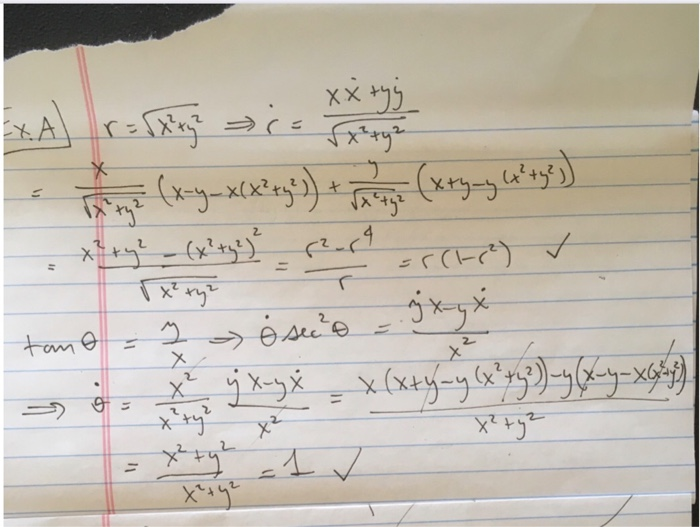 Ex.A) r = √(x²+y²) ⇒ ṙ = (xẋ + yẏ)/√(x²+y²)
= x/√(x²+y²) (x-y-x(x²+y²)) + y/√(x²+y²) (x+y-y(x²+y²))
= (x²+y² - (x²+y²)²)/√(x²+y²) = (r²-r⁴)/r = r(1-r²) ✓
tan θ = y/x ⇒ θ̇ sec²θ = (ẏx-yẋ)/x²
⇒ θ̇ = x²/(x²+y²) (ẏx-yẋ)/x² = (x(x+y-y(x²+y²))-y(x-y-x(x²+y²)))/(x²+y²)
= (x²+y²)/(x²+y²) = 1 ✓